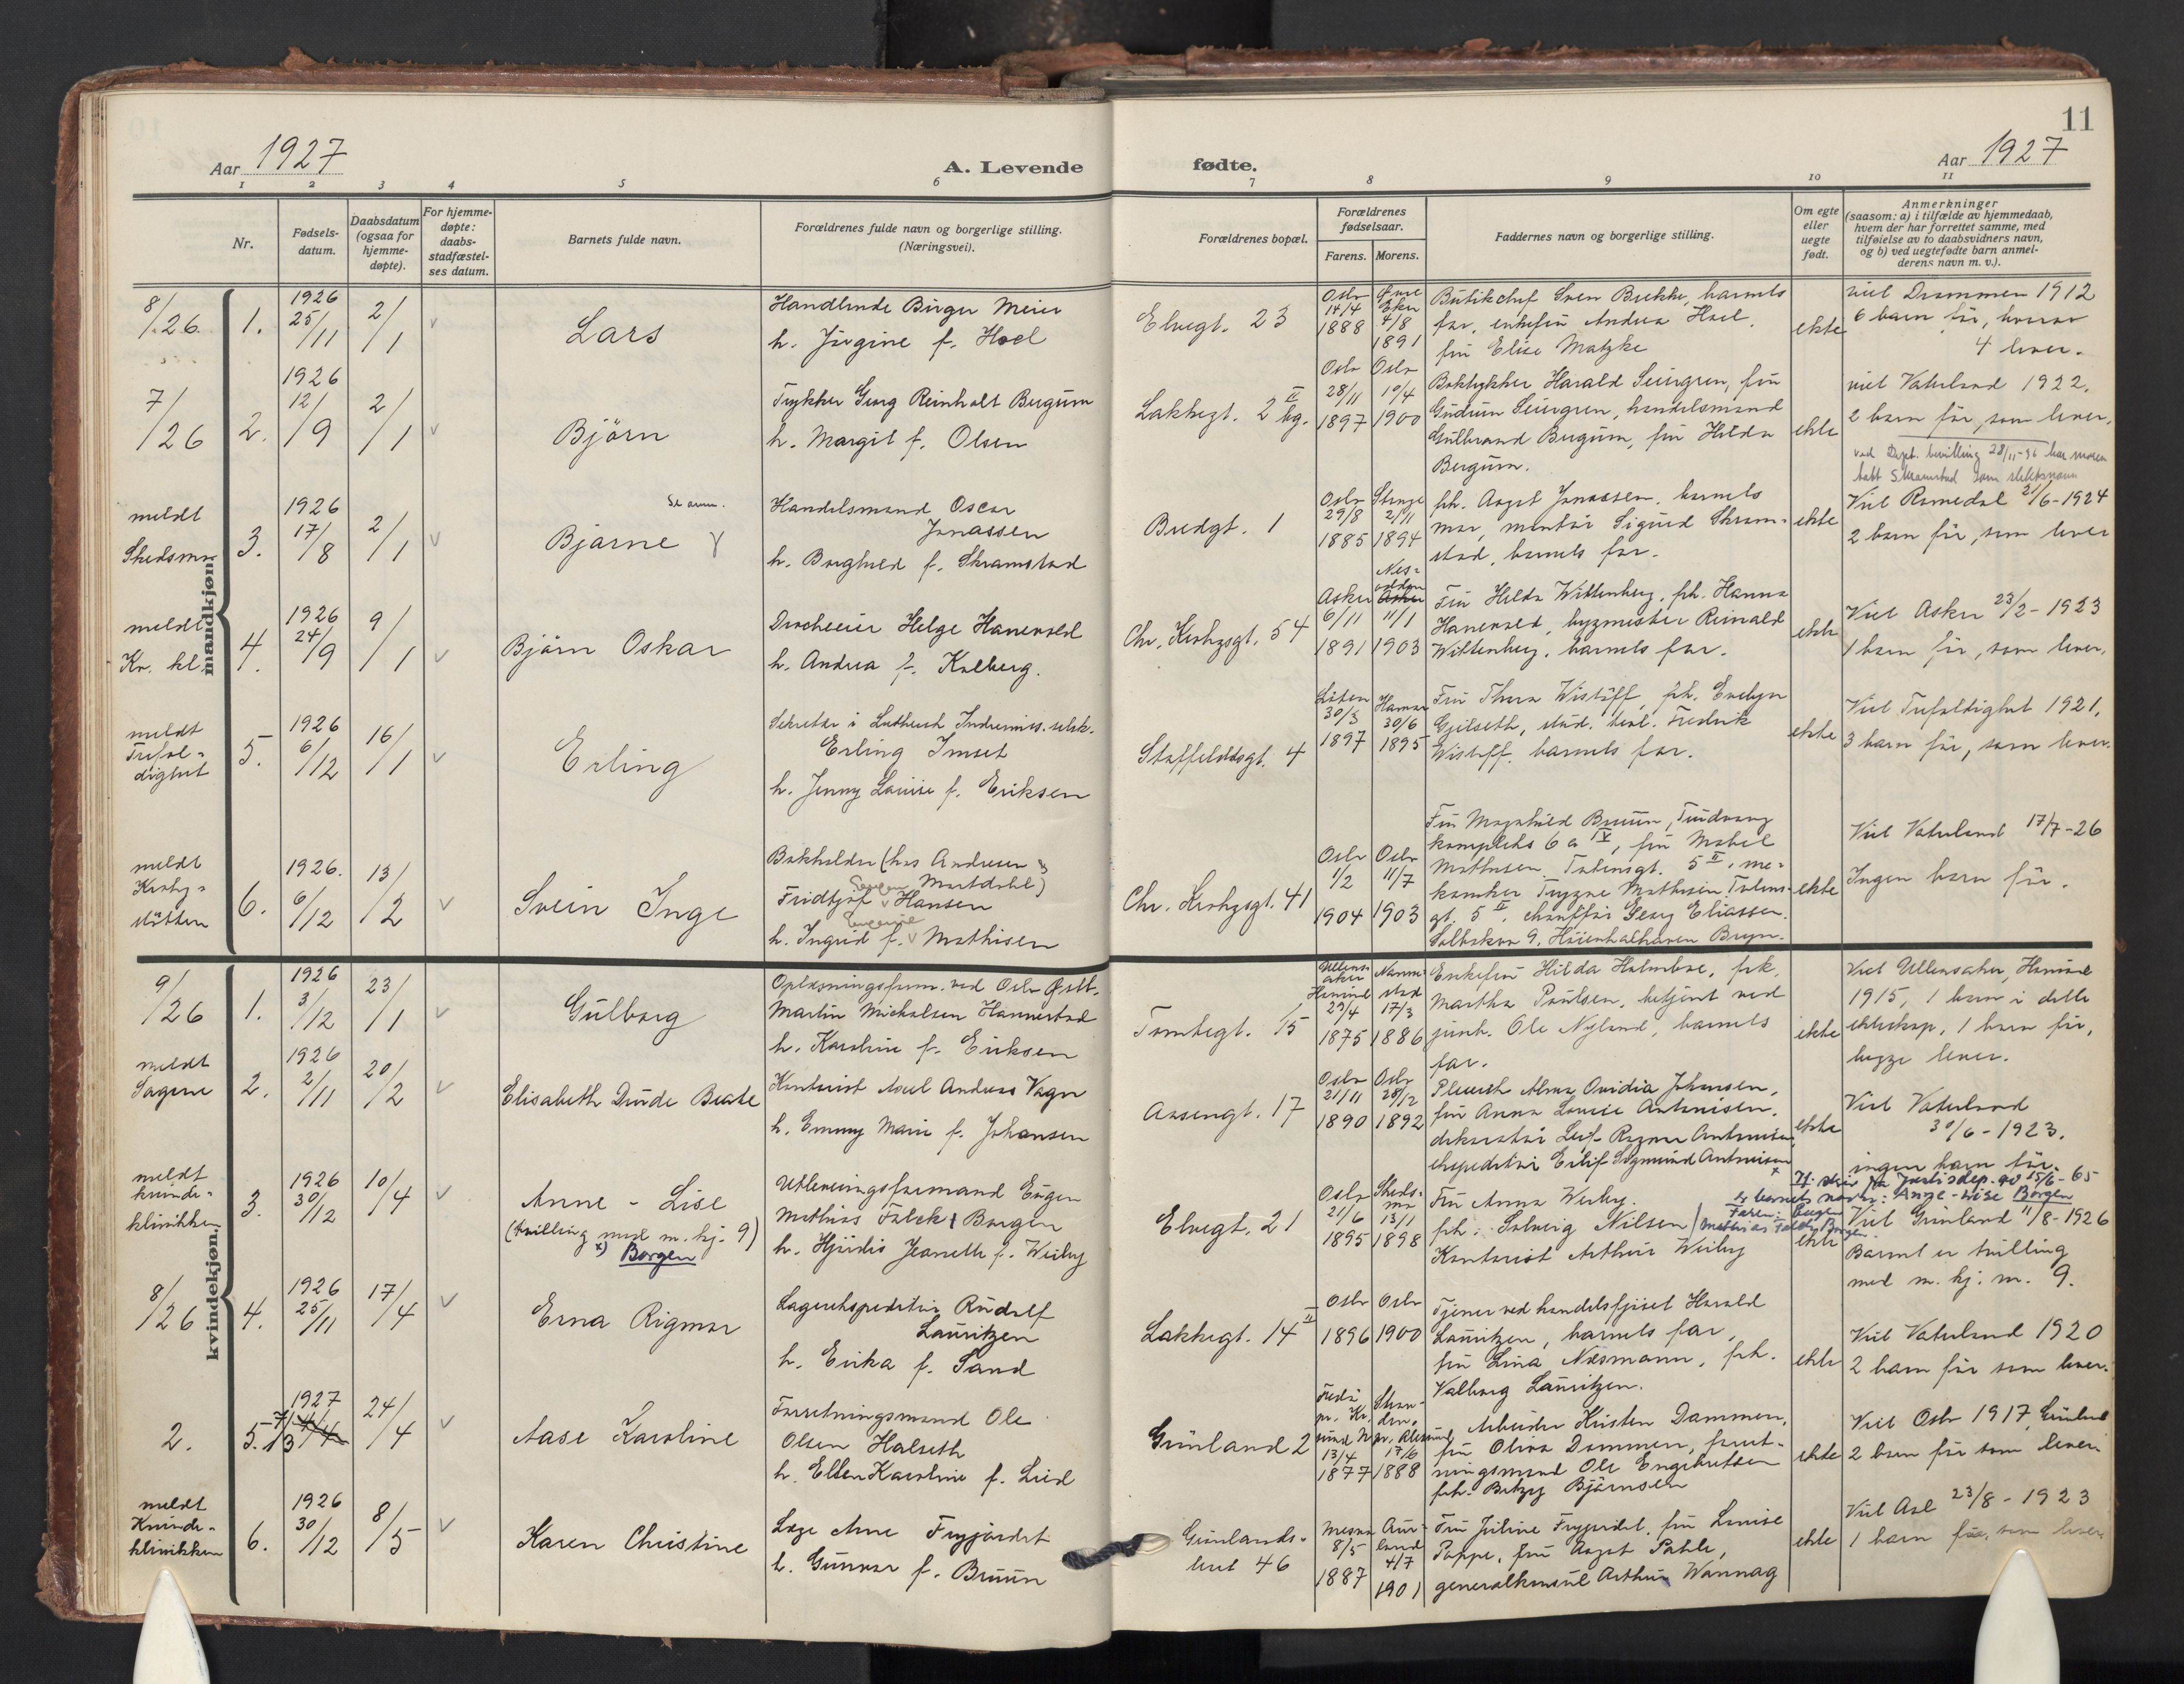 11
Aar 1927
A. Levende
fødte.
Aar 1927
1 2 3 4 5 6 7 8 9 10 11
Nr.
Fødsels-
datum.
Daabsdatum
(ogsaa for
hjemme-
døpte).
For hjemme-
døpte:
daabs-
stadfæstel-
ses datum.
Barnets fulde navn.
Forældrenes fulde navn og borgerlige stilling.
(Næringsvei).
Forældrenes bopæl.
Forældrenes
fødselsaar.
Farens. Morens.
Faddernes navn og borgerlige stilling.
Om egte
eller
uegte
født.
Anmerkninger
(saasom: a) i tilfælde av hjemmedaab,
hvem der har forrettet samme, med
tilføielse av to daabsvidners navn,
og b) ved uegtefødte barn anmel-
derens navn m. v.).
mandkjøn.
8/26 1. 1926 25/11 2/1
Lars
Handlende Birger Meier
h. Jørgine f. Hoel
Elvegt. 23
Oslo 14/4 1888
Øvre Eker 4/8 1891
Butikchef Sven Brekke, barnets
far, enkefru Andrea Hoel,
fru Elise Matzke
ekte
viet Drammen 1912
6 barn før, hvorav
4 lever.
7/26 2. 1926 12/9 2/1
Bjørn
Trykker Georg Reinholt Bergum
h. Margit f. Olsen
Lakkegt. 2 II bg.
Oslo 28/11 1897
Oslo 10/4 1900
Boktykker Harald Seiergren, fru
Gudrun Seiergren, handelsmand
Gulbrand Bergum, fru Hilda
Bergum.
ekte
viet Vaterland 1922.
2 barn før, som lever.
ved Dept. bevilling 28/11-36 har moren
tatt Skramstad som slektsnavn
meldt
Skedsmo
3. 1926 17/8 2/1
Bjarne
Handelsmand Oscar
Jonassen
h. Borghild f. Skramstad
Bredgt. 1
Oslo 29/8 1885
Stange 2/11 1894
frk. Aagot Jonassen, barnets
mor, montør Sigurd Skram-
stad, barnets far.
ekte
Viet Romedal 21/6-1924
2 barn før, som lever
meldt
Kr. kl.
4. 1926 24/9 9/1
Bjørn Oskar
Drocheeier Helge Hanevold
h. Andrea f. Kolberg.
Chr. Krohgsgt. 54
Asker 6/11 1891
Nes-
odden
Asker 11/1 1903
Fru Hilda Wittenberg, frk. Hanna
Hanevold, bygmester Reinald
Wittenberg, barnets far.
ekte
Viet Asker 23/2-1923
1 barn før, som lever.
meldt
Trefol-
dighet
5. 1926 6/12 16/1
Erling
Sekretær i Luthersk Indremis. selsk.
Erling Imset
h. Jenny Louise f. Eriksen
Staffeldtsgt. 4
Løten 30/3 1897
Hamar 30/6 1895
Fru Thora Wisløff, frk. Evelyn
Gjelseth, stud. teol. Fredrik
Wisløff, barnets far.
ekte
Viet Trefoldighet 1921.
3 barn før, som lever.
meldt
Krohg-
støtten
6. 1926. 6/12 13/2
Svein Inge
Bokholder (hos Andresen &
Martdahl)
Fridtjof Hansen
h. Ingrid f. Mathisen
Chr. Krohgsgt. 41
Oslo 1/2 1904
Oslo 11/7 1903
Fru Magnhild Bruun, Tindvang
kompleks 6 a IV, fru Mabel
Mathisen, Totensgt. 5 II, me-
kaniker Trygve Mathisen Totens-
gt. 5 II, chauffør Georg Eliassen.
ekte
Viet Vaterland 17/7-26
Ingen barn før.
kvindekjøn.
9/26 1. 1926 3/12 23/1
Gulborg
Martin Michelsen Hannestad
h. Karoline f. Eriksen
Tomtegt. 15
Ullens-
aker
29/4 1875
Nanne-
stad
17/3 1886
Enkefru Hilda Holmboe, frk.
Martha Poulsen, betjent ved
jernb. Ole Nyland, barnets
far.
ekte
Viet Ullensaker,
1915, 1 barn i dette
ekteskap, 1 barn før,
begge lever.
meldt
Sagene
2. 1926 2/11 20/2
Elisabeth Dinde Beate
Kontorist Axel Andreas Vagn
h. Emmy Marie f. Johansen
Aasengt. 17
Oslo 21/11 1890
Oslo 28/12 1892
Pleiersk Alma Ovidia Johansen,
fru Anna Louise Antonisen,
dekoratør Leif Ragnar Antonisen
ekspeditør Eilif Sigmund Antonisen
ekte
Viet Vaterland
30/6-1923.
ingen barn før.
meldt
kvinde-
klinikken
3. 1926 30/12 10/4
Anne - Lise
(tvilling med m. kj. 9)
x) Borgen
Utleveringsformand Eugen
Mathias Falck Borgen
h. Hjørdis Jeanette f. Weiby
Elvegt. 21
Oslo 21/6 1895
Skeds-
mo
13/1 1898
Fru Anna Weiby.
frk. Solveig Nilsen
Kontorist Arthur Weiby
ekte
x If. skriv fra Justisdep. av 15/6-65
er barnets navn: Anne-Lise Borgen
Faren: Eugen
Mathias Falck Borgen.
Viet Grønland 11/8-1926
Barnet er tvilling
med m. kj. nr. 9.
8/26 4. 1926 25/11 17/4
Erna Rigmor
Lagerekspeditør Rudolf
Lauritzen
h. Erika f. Sand
Lakkegt. 14 II
Oslo 1896
Oslo 1900
Tjener ved handelsfjøset Harald
Lauritzen, barnets far,
fru Lina Næsmann, frk.
Valborg Lauritzen.
ekte
Viet Vaterland 1920
2 barn før som lever.
2. 5. 1927 7/3 24/4
Aase Karoline
Forretningsmand Ole
Olsen Halseth
h. Ellen Karoline f. Lied
Grønland 2
13/4 1877
17/6 1888
Arbeider Kristen Dammen,
fru Oliva Dammen, forret-
ningsmand Ole Engebretsen
frk. Betzy Bjørnsen
ekte
Viet Oslo 1917, Grønland
2 barn før som lever
meldt
Kvinde-
klinikken
6. 1926 30/12 8/5
Karen Christine
Læge Arne Frygjordet
h. Gunvor f. Bruun
Grønlands-
leret 46
8/5 1887
Aur-
land
4/7 1901
Fru Juline Frygjordet, fru Louise
Poppe, fru Aagot Pohle,
generalkonsul Arthur Wannag
ekte
Viet Asl 23/8-1923
1 barn før, som lever